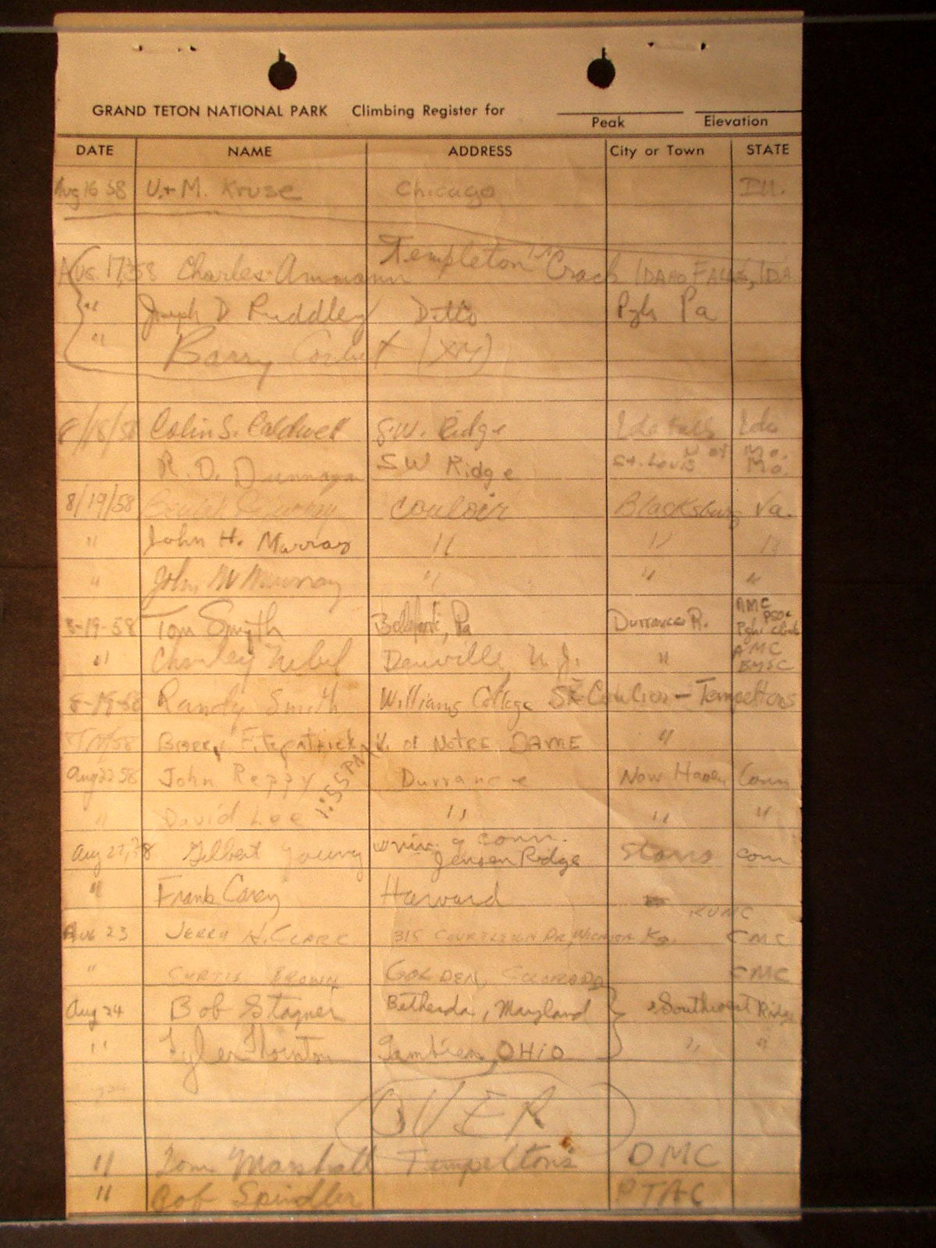 GRAND TETON NATIONAL PARK Climbing Register for
Peak Elevation
DATE NAME ADDRESS City or Town STATE
Aug 16 58 V. + M. Kruse Chicago Ill.
Aug. 17, 58 Charles Ammann Templeton's Crack IDAHO FALLS, IDA
" Joseph D Riddley Ditto Pgh Pa
" Barry Corbet (XM)
8/18/58 Colin S. Caldwell S.W. Ridge Ida Falls Ida
R. D. SW Ridge St. Louis Mo.
8/19/58 Couloir Blacksburg Va.
" John H. Murray " " "
" John M Murray " " "
8-19-58 Tom Smyth Pa Durrance R. AMC
" Charley Nebel Danville, N.J. " AMC
8-19-58 Randy Smith Williams College SE Couloir - Tempeltons
Fitzpatrick U. of NOTRE DAME "
Aug 22 58 John Reppy Durrance New Haven Conn
" David Lee 1:55 PM " " "
Gilbert Young univ. of conn. Jensen Ridge Storrs con
" Frank Carey Harvard
KUMC
AUG 23 JERRY H. CLARK 315 DR, WICHITA Ks. CMC
" CURTIS BROWN GOLDEN, COLORADO CMC
Aug 24 Bob Stagner Bethesda, Maryland Southwest Ridge
" Tyler Thornton Gambier, OHIO " "
OVER
" Tom Marshall Tempelton's DMC
" Bob Spindler PTAC